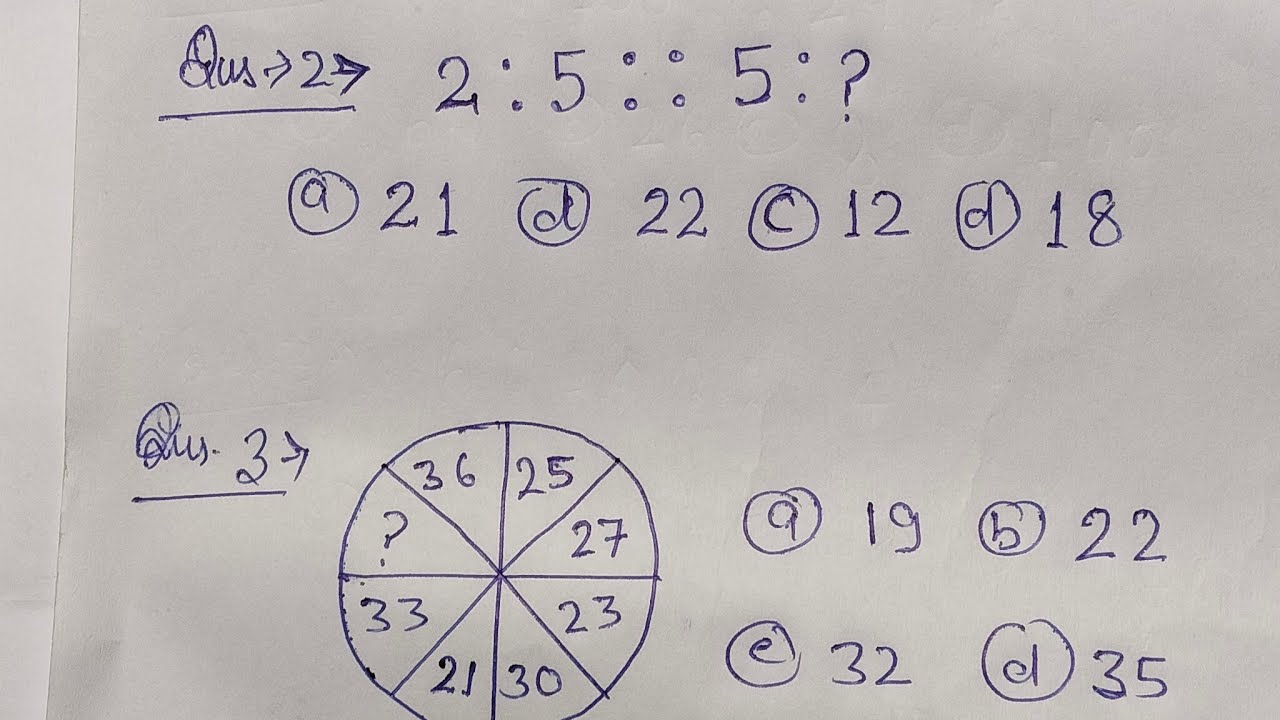 Qus→2→ 2 : 5 : : 5 : ?
(a) 21 (d) 22 (c) 12 (d) 18
Qus. 3→
36 25
? 27
33 23
21 30
(a) 19 (b) 22
(c) 32 (d) 35